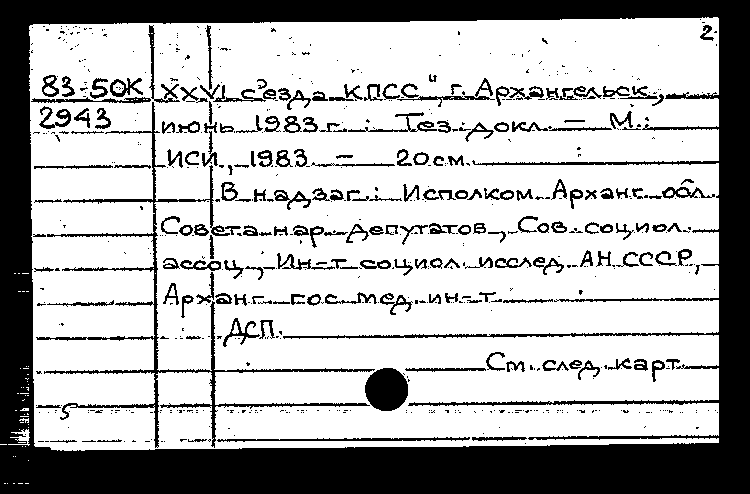 2
83-50К XXVI с'езда КПСС", г. Архангельск,
2943 июнь 1983 г. : Тез. докл. - М. :
ИСИ, 1983 - 20 см. :
В надзаг. : Исполком Арханг. обл.
Совета нар. депутатов, Сов. социол.
ассоц., Ин-т социол. исслед. АН СССР,
Арханг. гос. мед. ин-т.
ДСП.
См. след. карт.
5